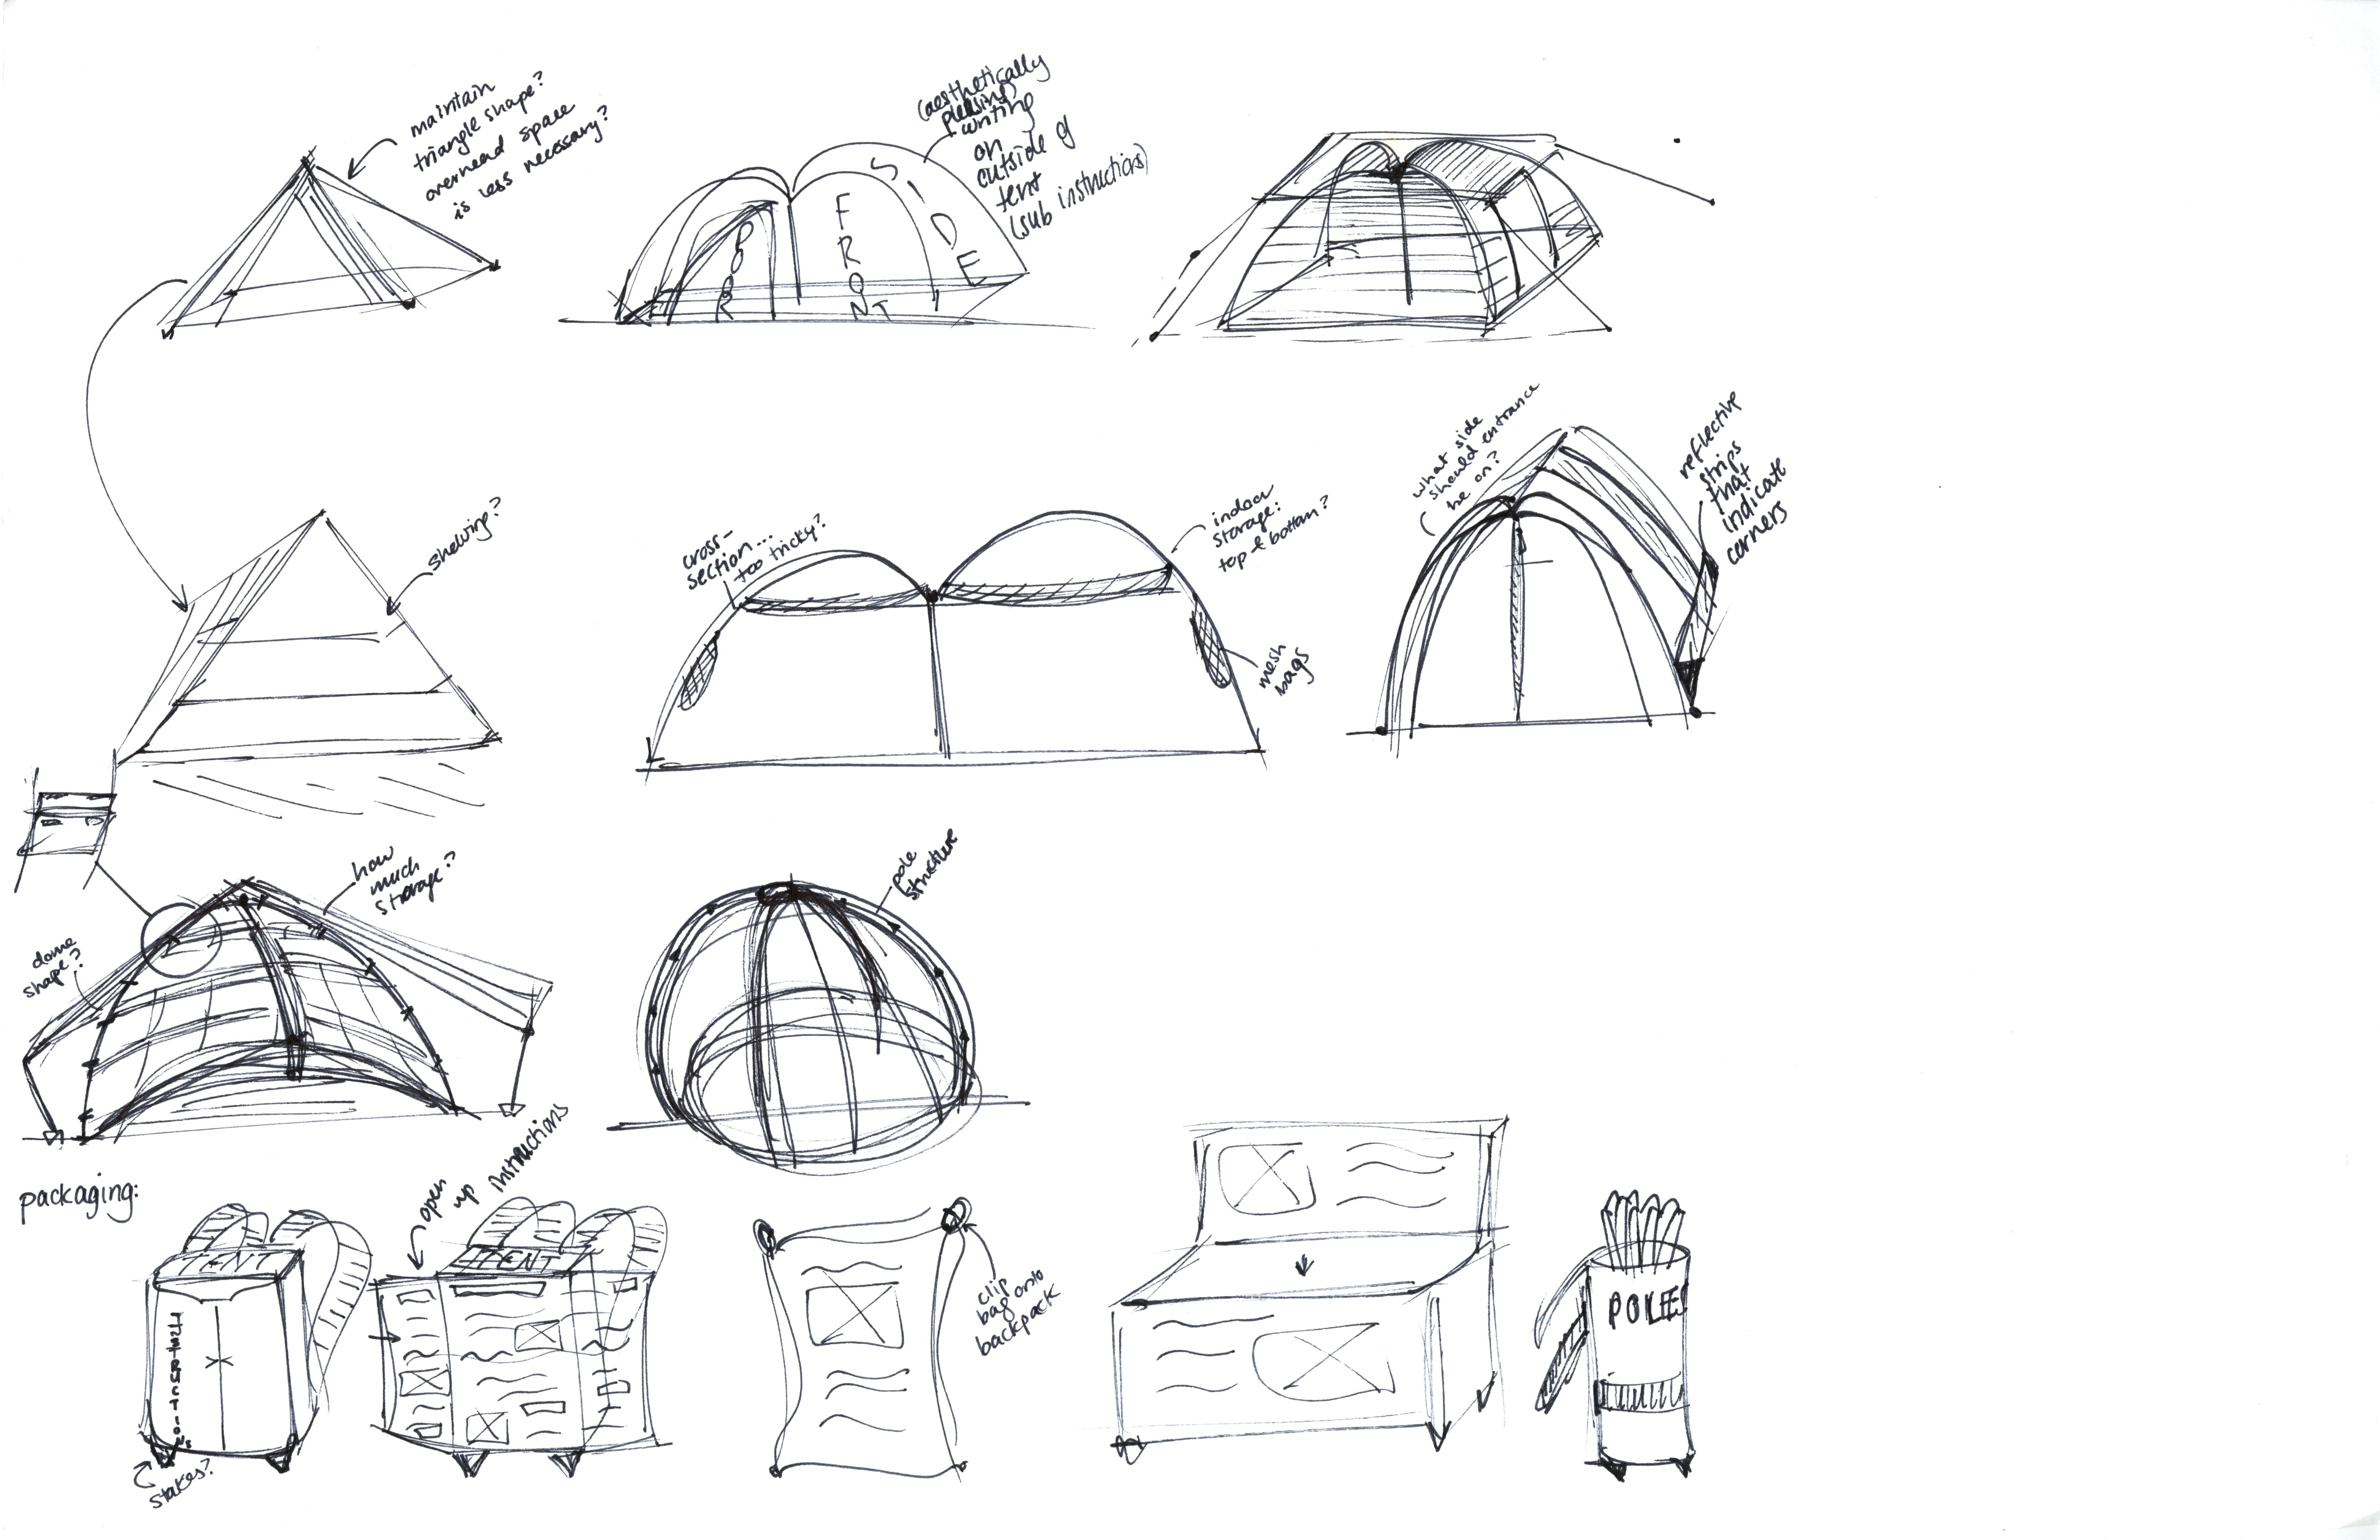 maintain
triangle shape?
overhead space
is less necessary?
(aesthetically
pleasing)
writing
on
outside of
tent
(sub instructions)
DOOR
FRONT
SIDE
shelving?
cross-
section...
too tricky?
indoor
storage:
top & bottom?
mesh
bags
what side
should entrance
be on?
reflective
strips
that
indicate
corners
how
much
storage?
dome
shape?
pole
structure
packaging:
TENT
INSTRUCTIONS
stakes?
open
up instructions
TENT
clip
bag onto
backpack
POLES